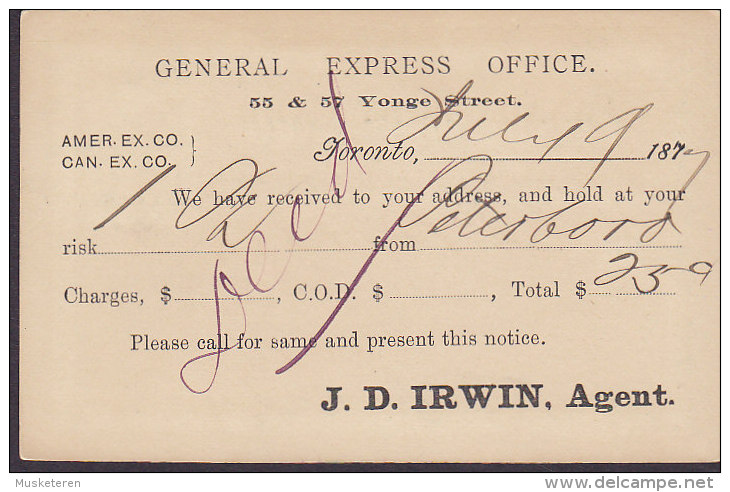 GENERAL EXPRESS OFFICE.
55 & 57 Yonge Street.
AMER. EX. CO.
CAN. EX. CO.
Toronto, July 9 1877
We have received to your address, and hold at your
risk 1 from Peterboro
Charges, $ , C.O.D. $ , Total $ 25
Please call for same and present this notice.
J. D. IRWIN, Agent.
Musketeren
delcampe.net